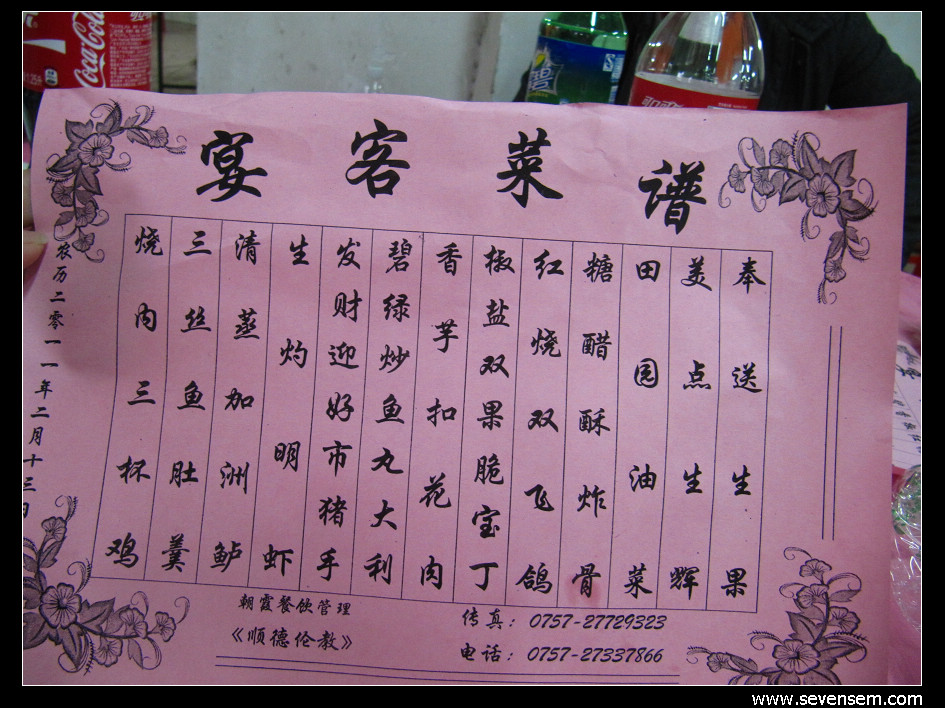 Coca-Cola
碧
宴客菜谱
烧内三杯鸡
三丝鱼肚羹
清蒸加洲鲈
生灼明虾
发财迎好市猪手
碧绿炒鱼丸大利
香芋扣花肉
椒盐双果脆宝丁
红烧双飞鸽
糖醋酥炸骨
田园油菜
美点生辉
奉送生果
农历二零一一年二月十三日
朝霞餐饮管理
《顺德伦教》
传真：0757-27729323
电话：0757-27337866
www.sevensem.com